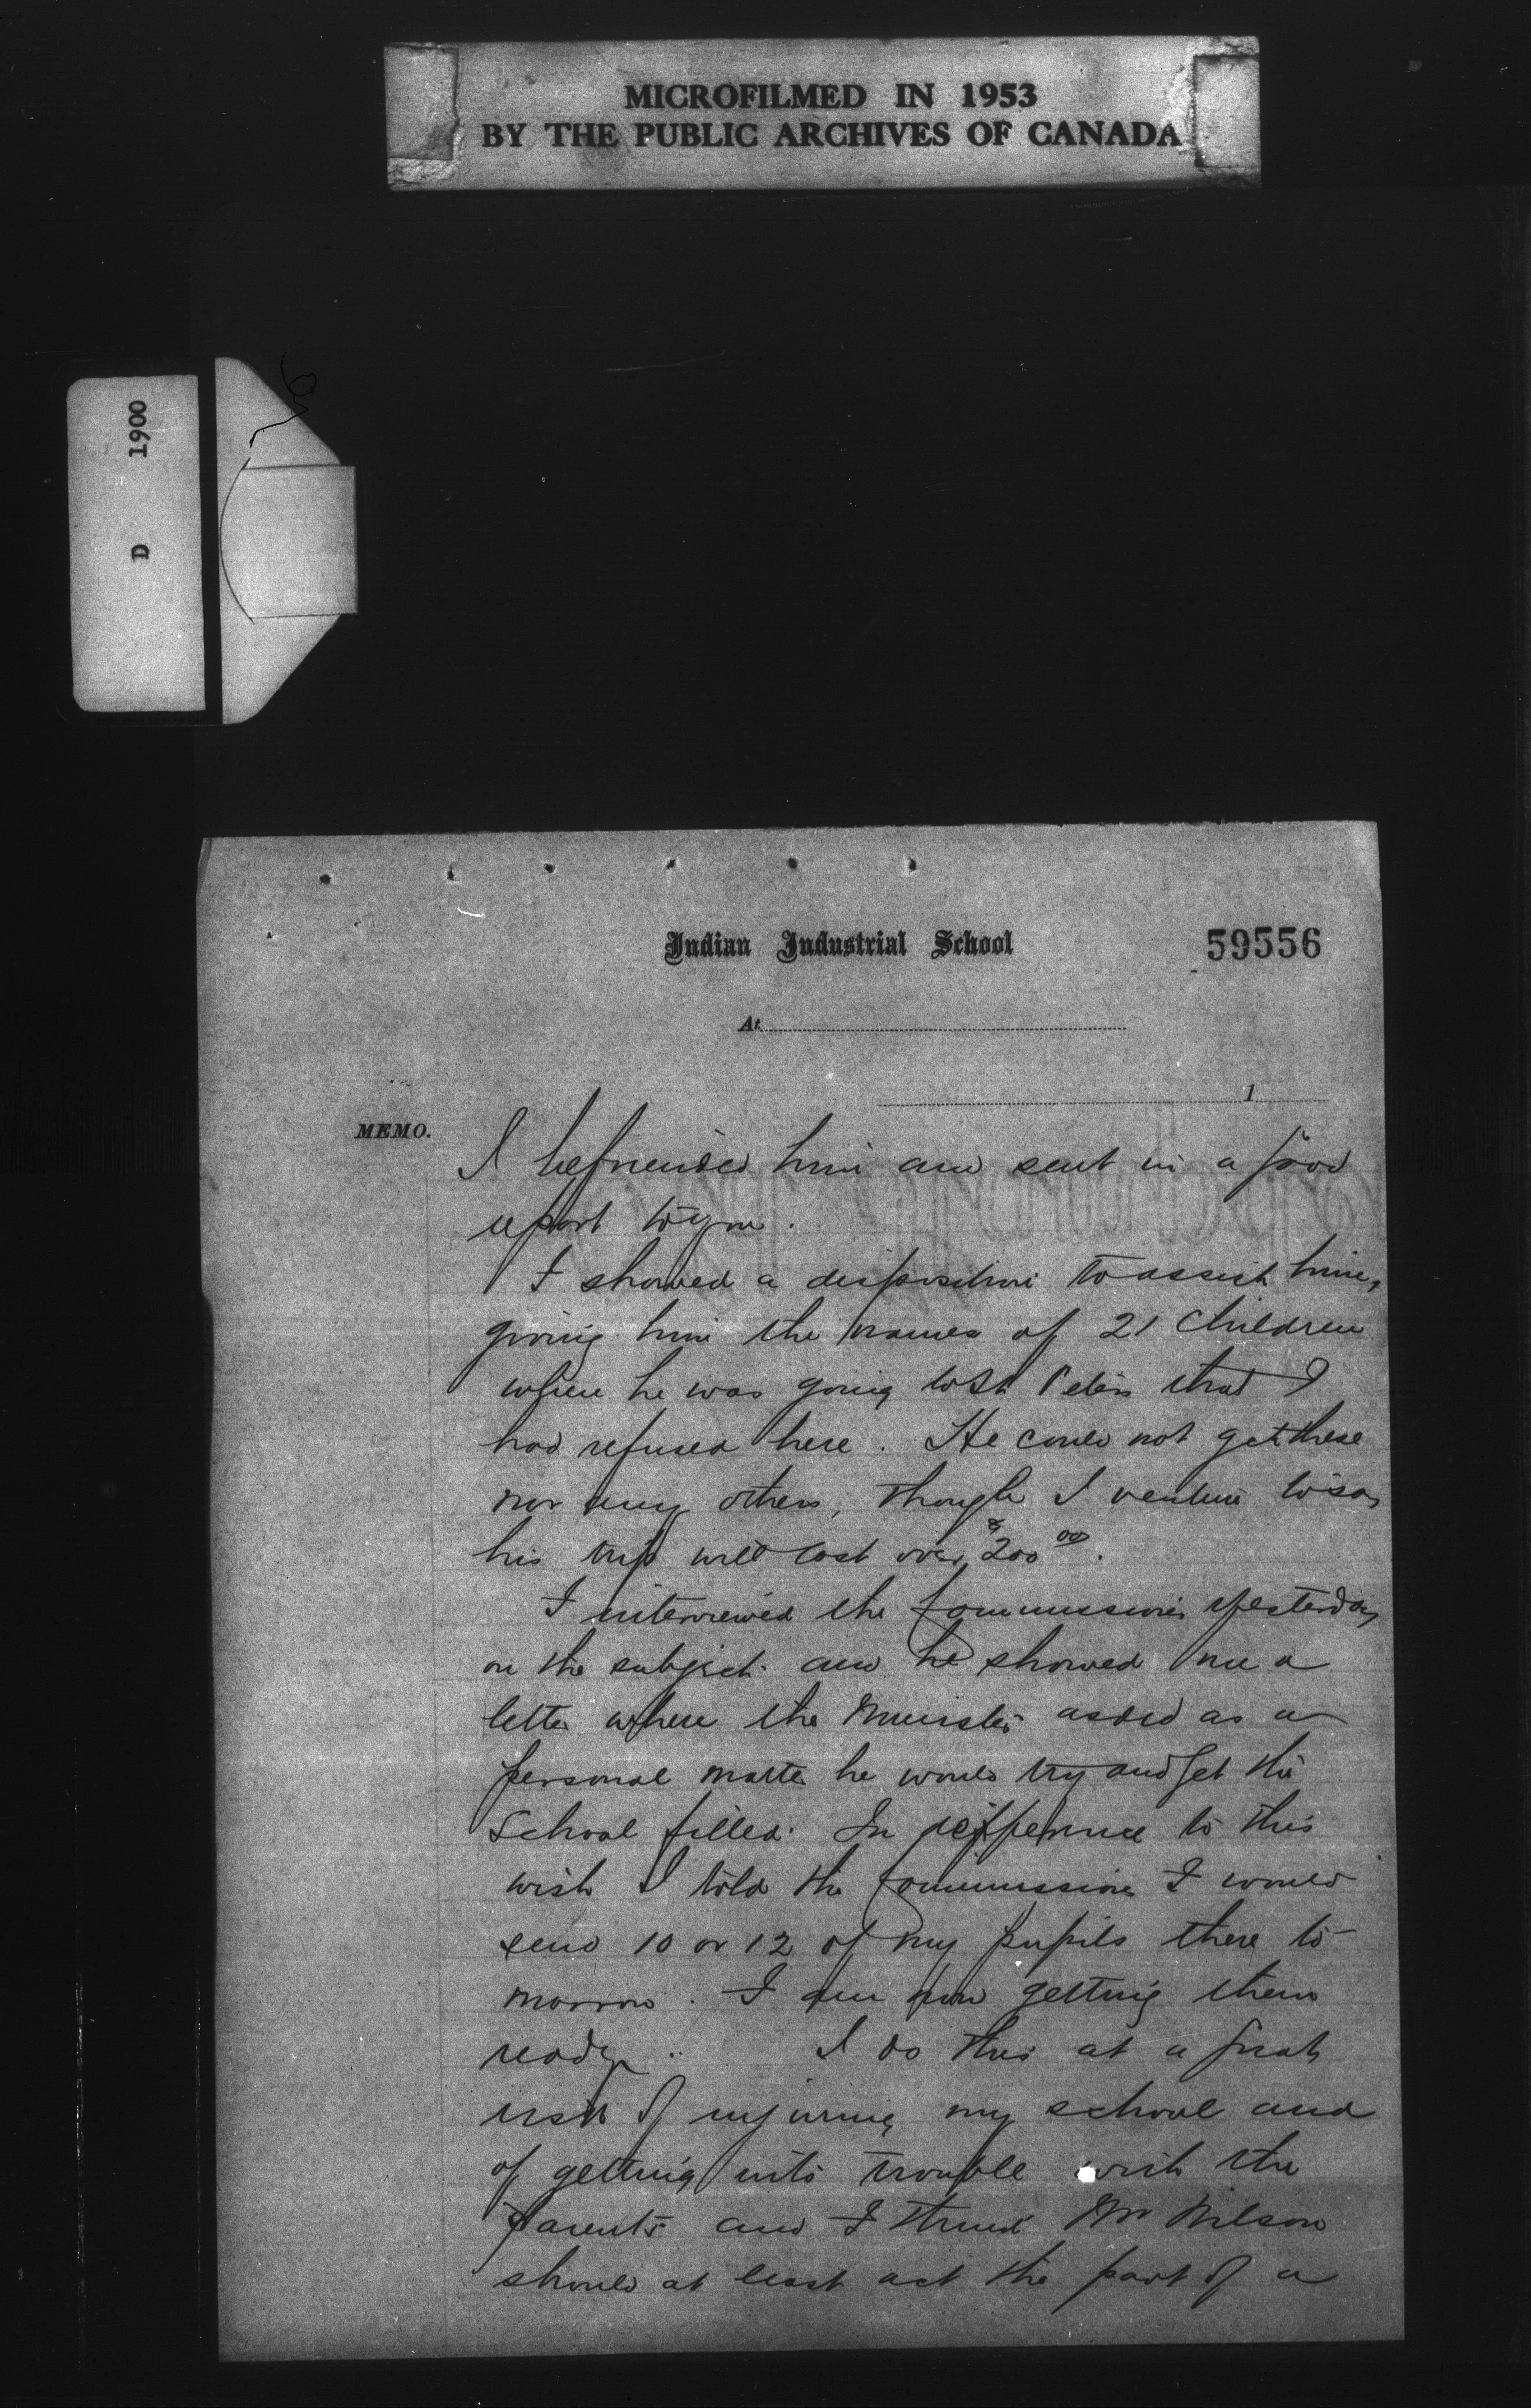 MICROFILMED IN 1953
BY THE PUBLIC ARCHIVES OF CANADA
D 1900
Indian Industrial School
59556
At
1
MEMO.
I befriended him and sent in a good
report to you.
I showed a disposition to assist him,
giving him the names of 21 children
when he was going to St Peters that I
had refused here. He could not get these
nor any others, though I venture to say
his trip will cost over $200 00.
I interviewed the Commissioner yesterday
on the subject and he showed me a
letter where the Minister asked as a
personal matter he would try and get the
School filled. In defference to this
wish I told the Commissioner I would
send 10 or 12 of my pupils there to-
morrow. I am now getting them
ready. I do this at a great
risk of injuring my school and
of getting into trouble with the
parents and I think Mr Wilson
should at least act the part of a